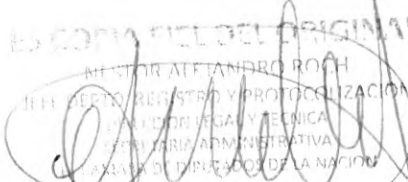 ES COPIA FIEL DEL ORIGINAL
NESTOR ALEJANDRO ROCH
JEFE DEPTO. REGISTRO Y PROTOCOLIZACION
DIRECCION LEGAL Y TECNICA
SECRETARIA ADMINISTRATIVA
H. CAMARA DE DIPUTADOS DE LA NACION